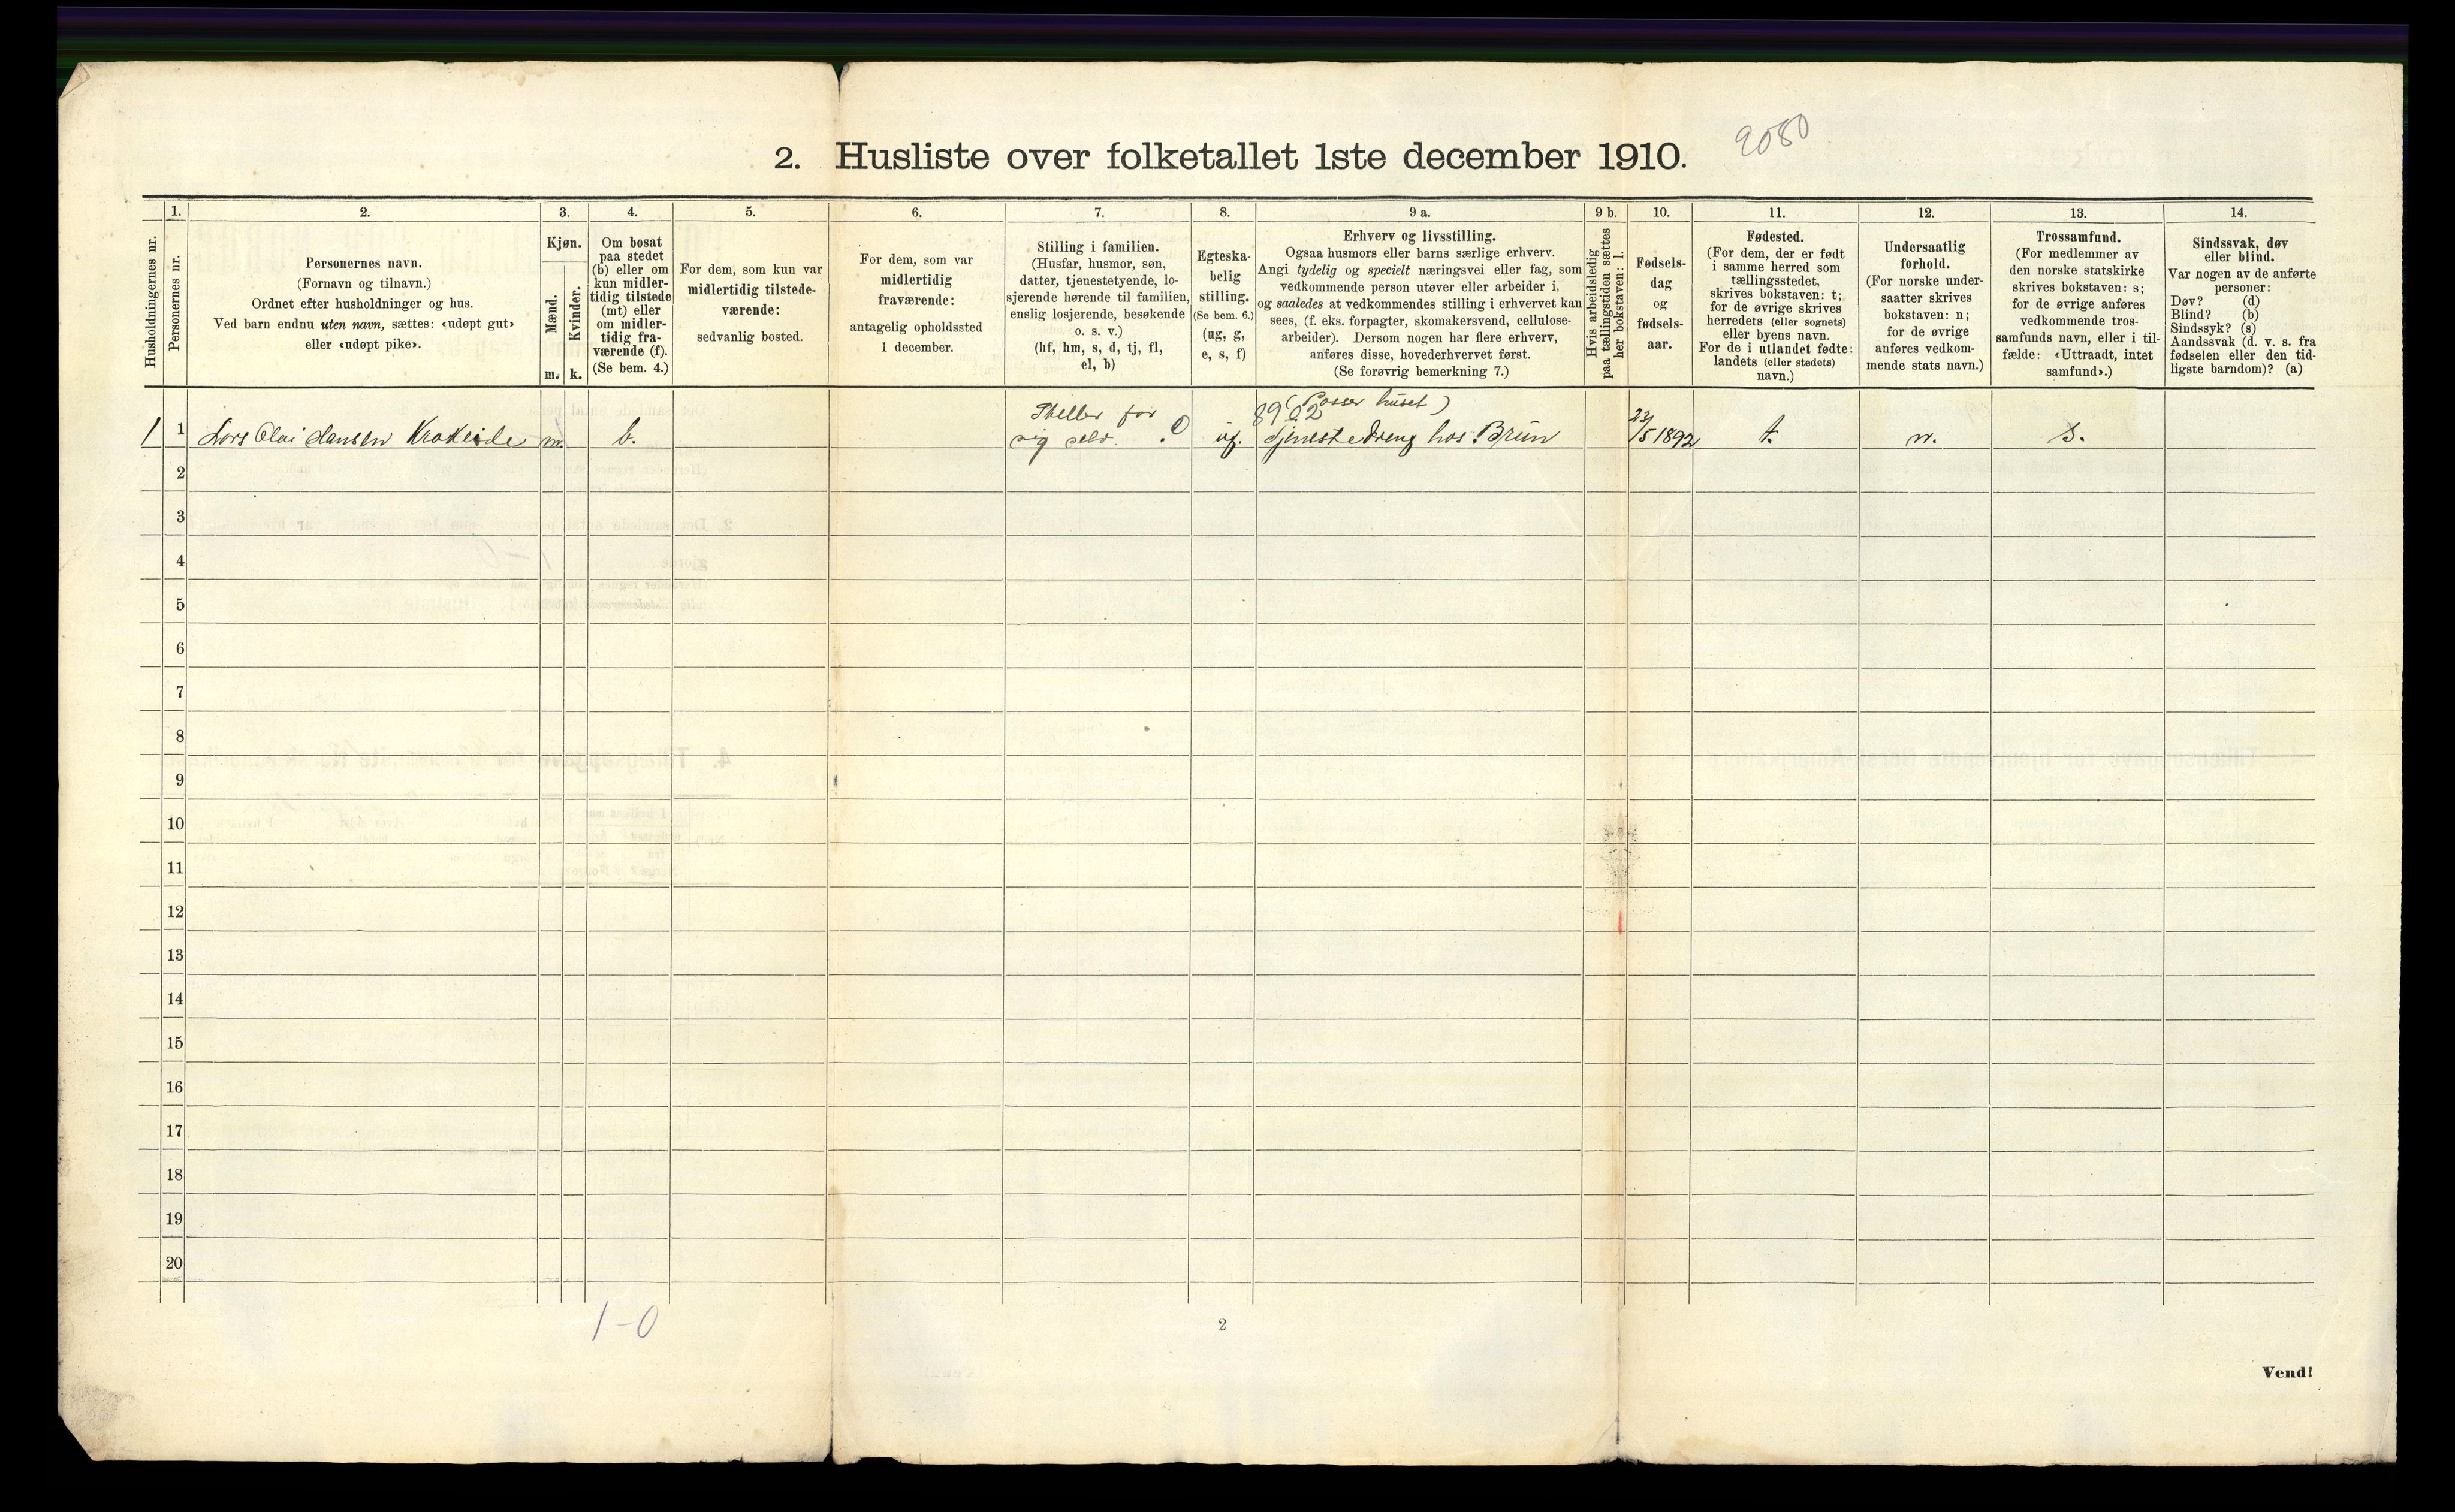 2. Husliste over folketallet 1ste december 1910.
2080
1.
2.
3.
4.
5.
6.
7.
8.
9 a.
9 b.
10.
11.
12.
13.
14.
Husholdningernes nr.
Personernes nr.
Personernes navn.
(Fornavn og tilnavn.)
Ordnet efter husholdninger og hus.
Ved barn endnu uten navn, sættes: «udøpt gut»
eller «udøpt pike».
Kjøn.
Mænd.
Kvinder.
m. k.
Om bosat
paa stedet
(b) eller om
kun midler-
tidig tilstede
(mt) eller
om midler-
tidig fra-
værende (f).
(Se bem. 4.)
For dem, som kun var
midlertidig tilstede-
værende:
sedvanlig bosted.
For dem, som var
midlertidig
fraværende:
antagelig opholdssted
1 december.
Stilling i familien.
(Husfar, husmor, søn,
datter, tjenestetyende, lo-
sjerende hørende til familien,
enslig losjerende, besøkende
o. s. v.)
(hf, hm, s, d, tj, fl,
el, b)
Egteska-
belig
stilling.
(Se bem. 6.)
(ug, g,
e, s, f)
Erhverv og livsstilling.
Ogsaa husmors eller barns særlige erhverv.
Angi tydelig og specielt næringsvei eller fag, som
vedkommende person utøver eller arbeider i,
og saaledes at vedkommendes stilling i erhvervet kan
sees, (f. eks. forpagter, skomakersvend, cellulose-
arbeider). Dersom nogen har flere erhverv,
anføres disse, hovederhvervet først.
(Se forøvrig bemerkning 7.)
Hvis arbeidsledig
paa tællingstiden sættes
her bokstaven: l.
Fødsels-
dag
og
fødsels-
aar.
Fødested.
(For dem, der er født
i samme herred som
tællingsstedet,
skrives bokstaven: t;
for de øvrige skrives
herredets (eller sognets)
eller byens navn.
For de i utlandet fødte:
landets (eller stedets)
navn.)
Undersaatlig
forhold.
(For norske under-
saatter skrives
bokstaven: n;
for de øvrige
anføres vedkom-
mende stats navn.)
Trossamfund.
(For medlemmer av
den norske statskirke
skrives bokstaven: s;
for de øvrige anføres
vedkommende tros-
samfunds navn, eller i til-
fælde: «Uttraadt, intet
samfund».)
Sindssvak, døv
eller blind.
Var nogen av de anførte
personer:
Døv? (d)
Blind? (b)
Sindssyk? (s)
Aandssvak (d. v. s. fra
fødselen eller den tid-
ligste barndom)? (a)
Steller for
8902
(Passer huset)
1 1 Lars Olai Hansen Krokeide m. b. sig selv. ug. Tjenestedreng hos Brun 23/5 1892 t. n. s.
2
3
4
5
6
7
8
9
10
11
12
13
14
15
16
17
18
19
20
1-0
2
Vend!